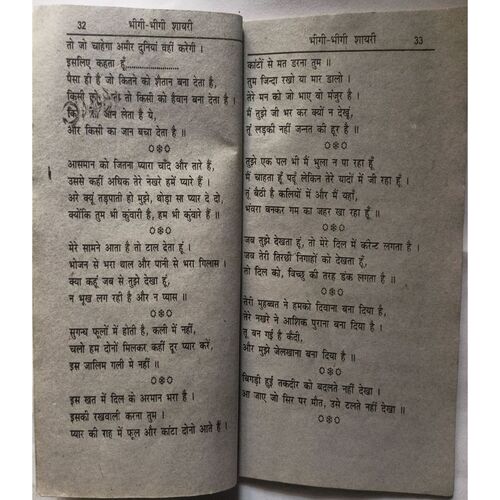 32 भीगी-भीगी शायरी
तो जो चाहेगा अमीर दुनियां वही करेगी ।
इसलिए कहता हूँ...........................
पैसा ही है जो कितने को शैतान बना देता है,
किसी को तो किसी को हैवान बना देता है ।
जान लेता है ये,
और किसी का जान बचा देता है ॥
आसमान को जितना प्यारा चाँद और तारे हैं,
उससे कहीं अधिक तेरे नखरे हमें प्यारे हैं ।
अरे क्यूं तड़पाती हो मुझे, थोड़ा सा प्यार दे दो,
क्योंकि तुम भी कुंवारी है, हम भी कुंवारे हैं ॥
मेरे सामने आता है तो टाल देता हूं ।
भोजन से भरा थाल और पानी से भरा गिलास ।
क्या कहूं जब से तुझे देखा हूं,
न भूख लग रही है और न प्यास ॥
सुगन्ध फूलों में होती है, कली में नहीं,
चलो हम दोनों मिलकर कहीं दूर प्यार करें,
इस जालिम गली में नहीं ॥
इस खत में दिल के अरमान भरा है ।
इसकी रखवाली करना तुम ।
प्यार की राह में फूल और कांटा दोनो आते हैं ।
भीगी-भीगी शायरी 33
कांटों से मत डरना तुम ॥
तुम जिन्दा रखो या मार डालो ।
तेरे मन को जो भाए वो मंजुर है ।
मैं तुझे जी भर कर क्यों न देखूं,
तूं लड़की नहीं जन्नत की हूर है ॥
तुझे एक पल भी मैं भुला न पा रहा हूँ
मैं चाहता हूँ पढूं लेकिन तेरे यादों में जी रहा हूँ ।
तूं बैठी है कलियों में और मैं यहाँ,
भंवरा बनकर गम का जहर खा रहा हूं ॥
जब तुझे देखता हूं, तो मेरे दिल में करेन्ट लगता है ।
जब तेरी तिरछी निगाहों को देखता हूं,
तो दिल को, बिच्छु की तरह डंक लगता है ॥
तेरी मुहब्बत ने हमको दिवाना बना दिया है,
तेरे नखरे ने आशिक पुराना बना दिया है ।
तू बन गई है कैदी,
और मुझे जेलखाना बना दिया है ॥
बिगड़ी हुई तकदीर को बदलते नहीं देखा ।
आ जाए जो सिर पर मौत, उसे टलते नहीं देखा ॥